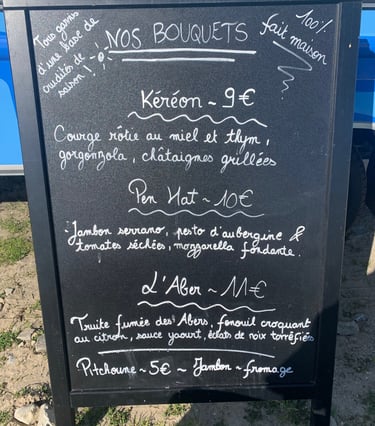 Tous garnis
d'une base de
crudités de
saison!
NOS BOUQUETS
100%
fait maison
Kéréon ~ 9€
Courge rôtie au miel et thym,
gorgonzola, châtaignes grillées
Pen Hat ~ 10€
Jambon serrano, pesto d'aubergine &
tomates séchées, mozzarella fondante.
L'Aber ~ 11€
Truite fumée des Abers, fenouil croquant
au citron, sauce yaourt, éclats de noix torréfiés
Pitchoune ~ 5€ ~ Jambon ~ fromage